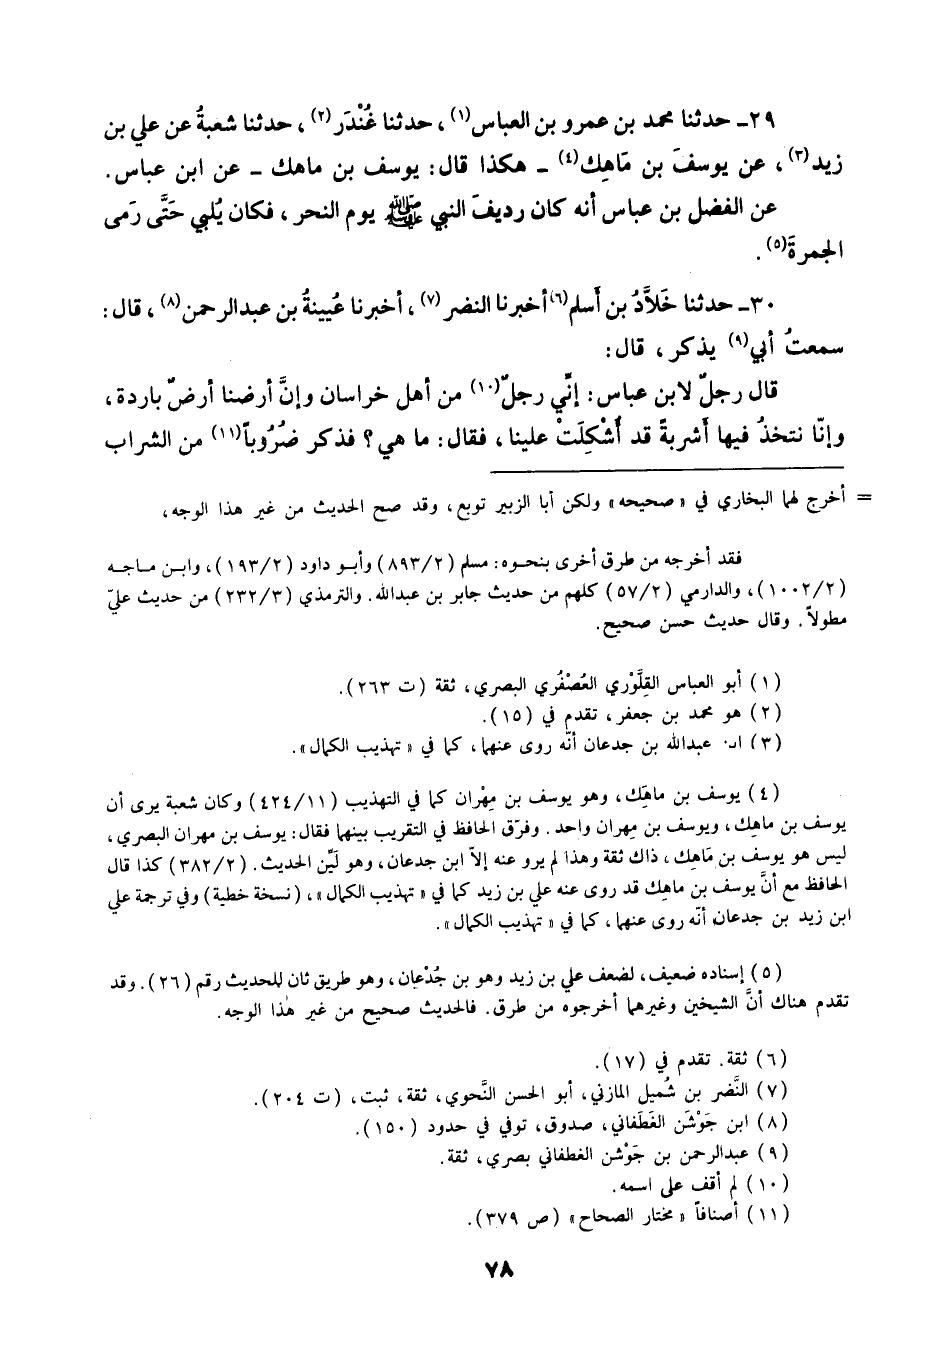 ٢٩ـ حدثنا محمد بن عمرو بن العباس(١)، حدثنا غُنْدَر(٢)، حدثنا شعبةُ عن علي بن
زيد(٣)، عن يوسفَ بن مَاهِك(٤) ـ هكذا قال: يوسف بن ماهك ـ عن ابن عباس.
عن الفضل بن عباس أنه كان رديفَ النبي ﷺ يوم النحر، فكان يُلبي حَتَّى رَمى
الجمرةَ(٥).
٣٠ـ حدثنا خَلاَّدُ بن أَسلم(٦) أخبرنا النضر(٧)، أخبرنا عُيينةُ بن عبدالرحمن(٨)، قال:
سمعتُ أبي(٩) يذكر، قال:
قال رجلٌ لابن عباس: إنِّي رجلٌ(١٠) من أهل خراسان وإنَّ أرضنا أرضٌ باردة،
وإنّا نتخذُ فيها أشربةً قد أُشْكِلَتْ علينا، فقال: ما هي؟ فذكر ضُرُوباً(١١) من الشراب
= أخرج لهما البخاري في «صحيحه» ولكن أبا الزبير توبع، وقد صح الحديث من غير هذا الوجه،
فقد أخرجه من طرق أخرى بنحوه: مسلم (٨٩٣/٢) وأبو داود (١٩٣/٢)، وابن ماجه
(١٠٠٢/٢)، والدارمي (٥٧/٢) كلهم من حديث جابر بن عبدالله. والترمذي (٢٣٢/٣) من حديث عليّ
مطولاً. وقال حديث حسن صحيح.
(١) أبو العباس القِلَّوْري العُصْفُري البصري، ثقة (ت ٢٦٣).
(٢) هو محمد بن جعفر، تقدم في (١٥).
(٣) ابن عبدالله بن جدعان أنّه روى عنهما، كما في «تهذيب الكمال».
(٤) يوسف بن ماهَِك، وهو يوسف بن مِهْران كما في التهذيب (٤٢٤/١١) وكان شعبة يرى أن
يوسف بن ماهِك، ويوسف بن مِهران واحد. وفرّق الحافظ في التقريب بينهما فقال: يوسف بن مهران البصري،
ليس هو يوسف بن مَاهِك، ذاك ثقة وهذا لم يرو عنه إلاّ ابن جدعان، وهو لَيِّن الحديث. (٣٨٢/٢) كذا قال
الحافظ مع أنَّ يوسف بن ماهك قد روى عنه علي بن زيد كما في «تهذيب الكمال»، (نسخة خطية) وفي ترجمة علي
ابن زيد بن جدعان أنّه روى عنهما، كما في «تهذيب الكمال».
(٥) إسناده ضعيف، لضعف علي بن زيد وهو بن جُدْعان، وهو طريق ثان للحديث رقم (٢٦). وقد
تقدم هناك أنَّ الشيخين وغيرهما أخرجوه من طرق. فالحديث صحيح من غير هٰذا الوجه.
(٦) ثقة. تقدم في (١٧).
(٧) النَّضر بن شُميل المازني، أبو الحسن النَّحوي، ثقة، ثبت، (ت ٢٠٤).
(٨) ابن جَوْشَن الغَطَفاني، صدوق، توفي في حدود (١٥٠).
(٩) عبدالرحمن بن جَوْشن الغطفاني بصري، ثقة.
(١٠) لم أقف على اسمه.
(١١) أصنافاً «مختار الصحاح» (ص ٣٧٩).
٧٨